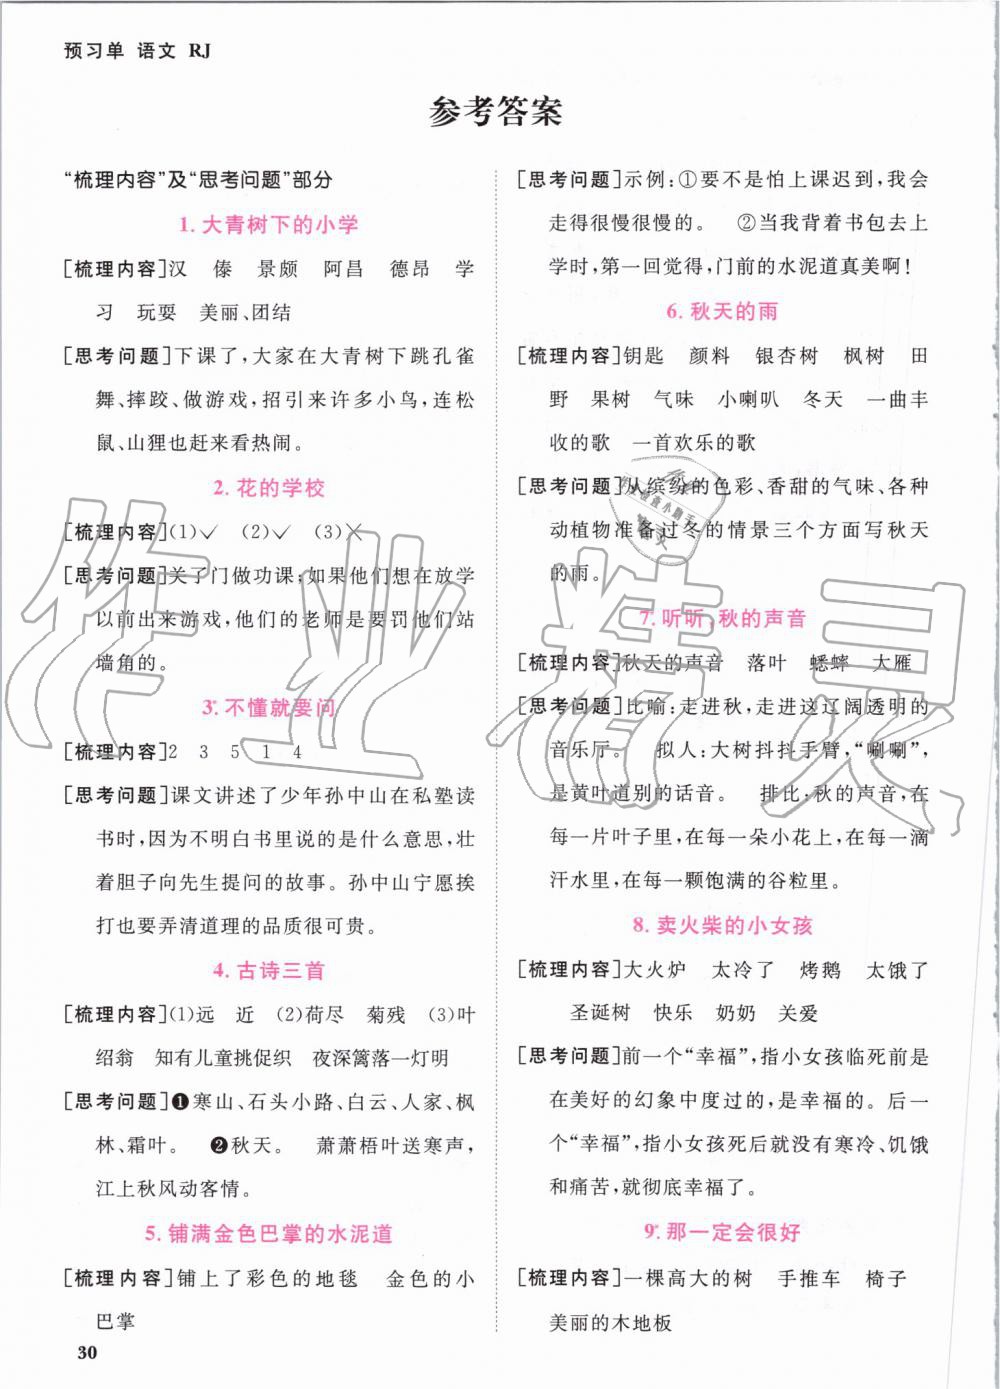 预习单 语文 RJ
参考答案
“梳理内容”及“思考问题”部分
1. 大青树下的小学
[梳理内容]汉 傣 景颇 阿昌 德昂 学
习 玩耍 美丽、团结
[思考问题]下课了,大家在大青树下跳孔雀
舞、摔跤、做游戏,招引来许多小鸟,连松
鼠、山狸也赶来看热闹。
2. 花的学校
[梳理内容](1)✓ (2)✓ (3)✕
[思考问题]关了门做功课;如果他们想在放学
以前出来游戏,他们的老师是要罚他们站
墙角的。
3*. 不懂就要问
[梳理内容]2 3 5 1 4
[思考问题]课文讲述了少年孙中山在私塾读
书时,因为不明白书里说的是什么意思,壮
着胆子向先生提问的故事。孙中山宁愿挨
打也要弄清道理的品质很可贵。
4. 古诗三首
[梳理内容](1)远 近 (2)荷尽 菊残 (3)叶
绍翁 知有儿童挑促织 夜深篱落一灯明
[思考问题]❶寒山、石头小路、白云、人家、枫
林、霜叶。 ❷秋天。 萧萧梧叶送寒声,
江上秋风动客情。
5. 铺满金色巴掌的水泥道
[梳理内容]铺上了彩色的地毯 金色的小
巴掌
30
[思考问题]示例:①要不是怕上课迟到,我会
走得很慢很慢的。 ②当我背着书包去上
学时,第一回觉得,门前的水泥道真美啊!
6. 秋天的雨
[梳理内容]钥匙 颜料 银杏树 枫树 田
野 果树 气味 小喇叭 冬天 一曲丰
收的歌 一首欢乐的歌
[思考问题]从缤纷的色彩、香甜的气味、各种
动植物准备过冬的情景三个方面写秋天
的雨。
7*. 听听,秋的声音
[梳理内容]秋天的声音 落叶 蟋蟀 大雁
[思考问题]比喻:走进秋,走进这辽阔透明的
音乐厅。 拟人:大树抖抖手臂,“唰唰”,
是黄叶道别的话音。 排比:秋的声音,在
每一片叶子里,在每一朵小花上,在每一滴
汗水里,在每一颗饱满的谷粒里。
8. 卖火柴的小女孩
[梳理内容]大火炉 太冷了 烤鹅 太饿了
圣诞树 快乐 奶奶 关爱
[思考问题]前一个“幸福”,指小女孩临死前是
在美好的幻象中度过的,是幸福的。后一
个“幸福”,指小女孩死后就没有寒冷、饥饿
和痛苦,就彻底幸福了。
9*. 那一定会很好
[梳理内容]一棵高大的树 手推车 椅子
美丽的木地板
作业精灵